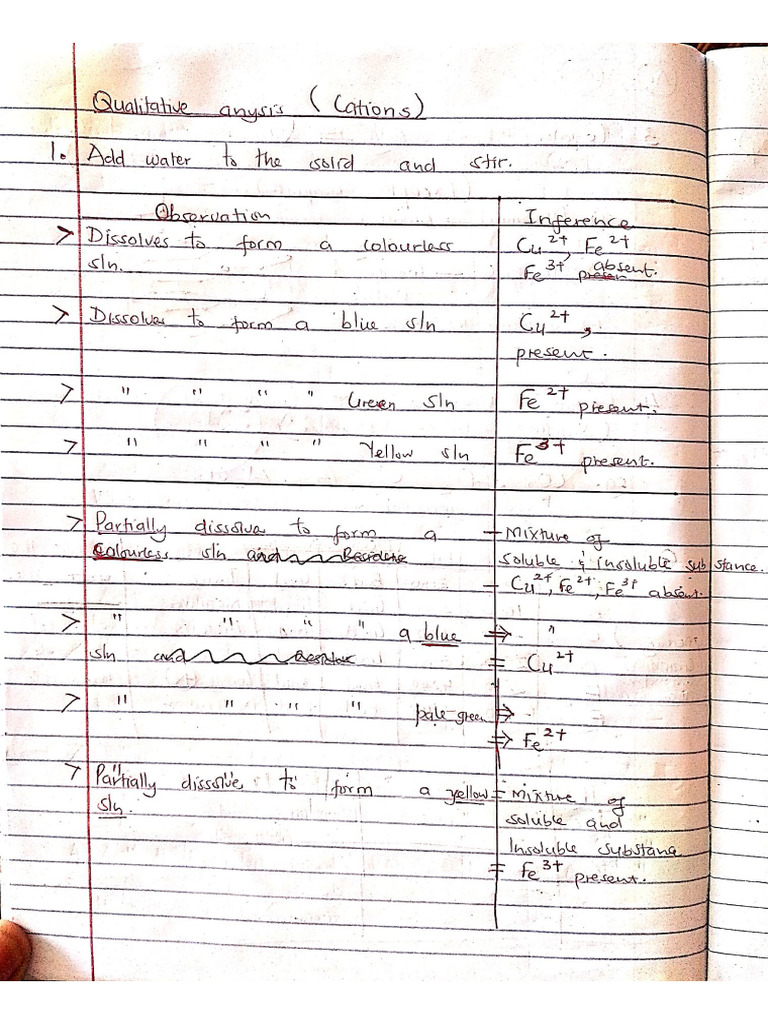 Qualitative anysis (Cations)
1. Add water to the solid and stir.
Observation Inference
> Dissolves to form a colourless Cu2+, Fe2+
sln. Fe3+ absent.
> Dissolves to form a blue sln Cu2+,
present.
> " " " " Green sln Fe2+ present.
> " " " " Yellow sln Fe3+ present.
> Partially dissolve to form a – Mixture of
Colourless sln and Residue soluble & insoluble substance.
– Cu2+, Fe2+, Fe3+ absent.
> " " " " a blue ⇒ "
sln and Residue = Cu2+
> " " " " pale green ⇒
⇒ Fe2+
> Partially dissolve to form a yellow = Mixture of
sln. soluble and
Insoluble substana
= Fe3+ present.